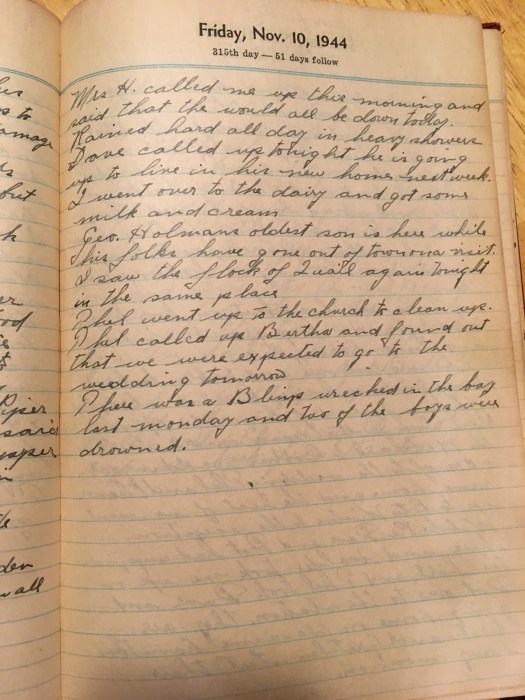 Friday, Nov. 10, 1944
315th day — 51 days follow
Mrs H. called me up this morning and
said that the would all be down today.
Rained hard all day in heavy showers
Dave called up tonight he is going
up to live in his new home next week.
I went over to the dairy and got some
milk and cream
Geo. Holmans oldest son is here while
his folks have gone out of town on a visit.
I saw the flock of Quail again tonight
in the same place
Thel went up to the church to clean up.
Thel called up Bertha and found out
that we were expected to go to the
wedding tomorrow
There was a Blimp wrecked in the bay
last monday and two of the boys were
drowned.
to
amage
but
Piper
said
all